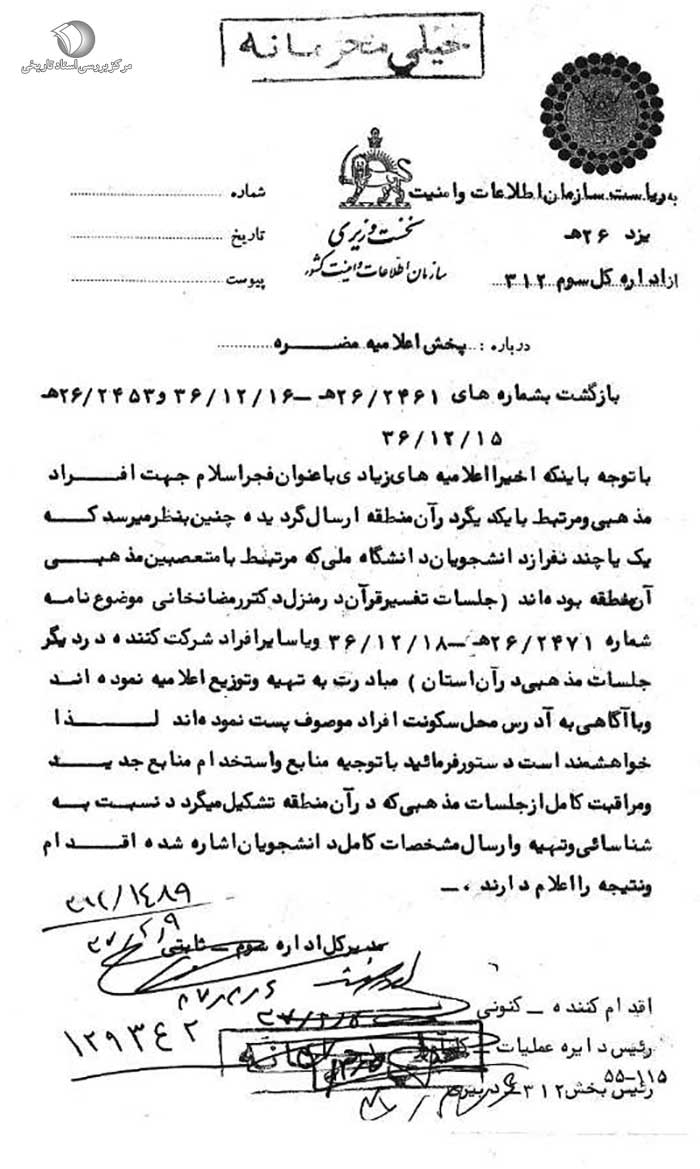 مرکز بررسی اسناد تاریخی
خیلی محرمانه
به ریاست سازمان اطلاعات و امنیت
یزد ۲۶هـ
از اداره کل سوم ۳۱۲
نخست وزیری
سازمان اطلاعات و امنیت کشور
شماره
تاریخ
پیوست
درباره : پخش اعلامیه مضره
بازگشت بشماره های ۲۶/۲۴۶۱هـ – ۳۶/۱۲/۱۶ و ۲۶/۲۴۵۳هـ
۳۶/۱۲/۱۵
با توجه باینکه اخیرا اعلامیه های زیادی با عنوان فجر اسلام جهت افراد
مذهبی و مرتبط با یکدیگر در آن منطقه ارسال گردیده چنین بنظر میرسد که
یک یا چند نفر از دانشجویان دانشگاه ملی که مرتبط با متعصبین مذهبی
آن منطقه بوده اند (جلسات تفسیر قرآن در منزل دکتر رمضانخانی موضوع نامه
شماره ۲۶/۲۴۷۱هـ – ۳۶/۱۲/۱۸ و یا سایر افراد شرکت کننده در دیگر
جلسات مذهبی در آن استان ) مبادرت به تهیه و توزیع اعلامیه نموده اند
و با آگاهی به آدرس محل سکونت افراد موصوف پست نموده اند لذا
خواهشمند است دستور فرمائید با توجیه منابع و استخدام منابع جدید
و مراقبت کامل از جلسات مذهبی که در آن منطقه تشکیل میگردد نسبت به
شناسائی و تهیه و ارسال مشخصات کامل دانشجویان اشاره شده اقدام
و نتیجه را اعلام دارند .–
۳۱۲/۱۴۸۹
۳۷/۲/۹
مدیر کل اداره سوم – ثابتی
اقدام کننده – کنونی
۱۲۹۳۴۲
رئیس دایره عملیات –
۵۵-۱۱۵
رئیس بخش ۳۱۲